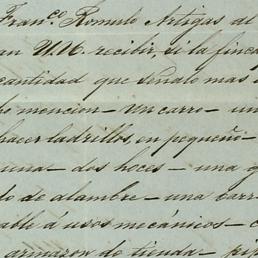 Franco. Romulo Artigas al
an U.U. recibir, si la finca
cantidad que señalo mas
ho mencion - un carro - un
hacer ladrillos, en pequeño -
una - dos hoces - una
do de alambre - una carr
alle á usos mecánicos -
armazon de tienda -